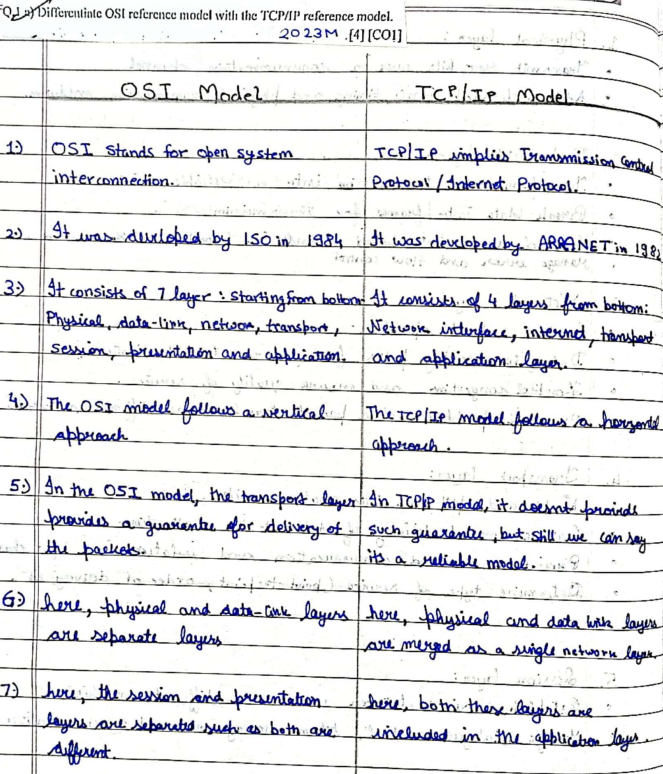 Q.1 a) Differentiate OSI reference model with the TCP/IP reference model.
2023M .[4] [CO1]
OSI Model
TCP/IP Model
1) OSI Stands for open system
interconnection.
TCP/IP implies Transmission Control
Protocol / Internet Protocol.
2) It was developed by ISO in 1984
It was developed by ARPANET in 1982
3) It consists of 7 layer : Starting from bottom
Physical, data-link, network, transport,
session, presentation and application.
It consists of 4 layers from bottom:
Network interface, internet, transport
and application layer.
4) The OSI model follows a vertical
approach
The TCP/IP model follows a horizontal
approach.
5) In the OSI model, the transport layer
provides a guarantee for delivery of
the packets.
In TCP/IP model, it doesnt provide
such guarantee, but still we can say
its a reliable model.
6) here, physical and data-link layers
are separate layers
here, physical and data link layers
are merged as a single network layer.
7) here, the session and presentation
layers are separated such as both are
different.
here, both these layers are
included in the application layer.